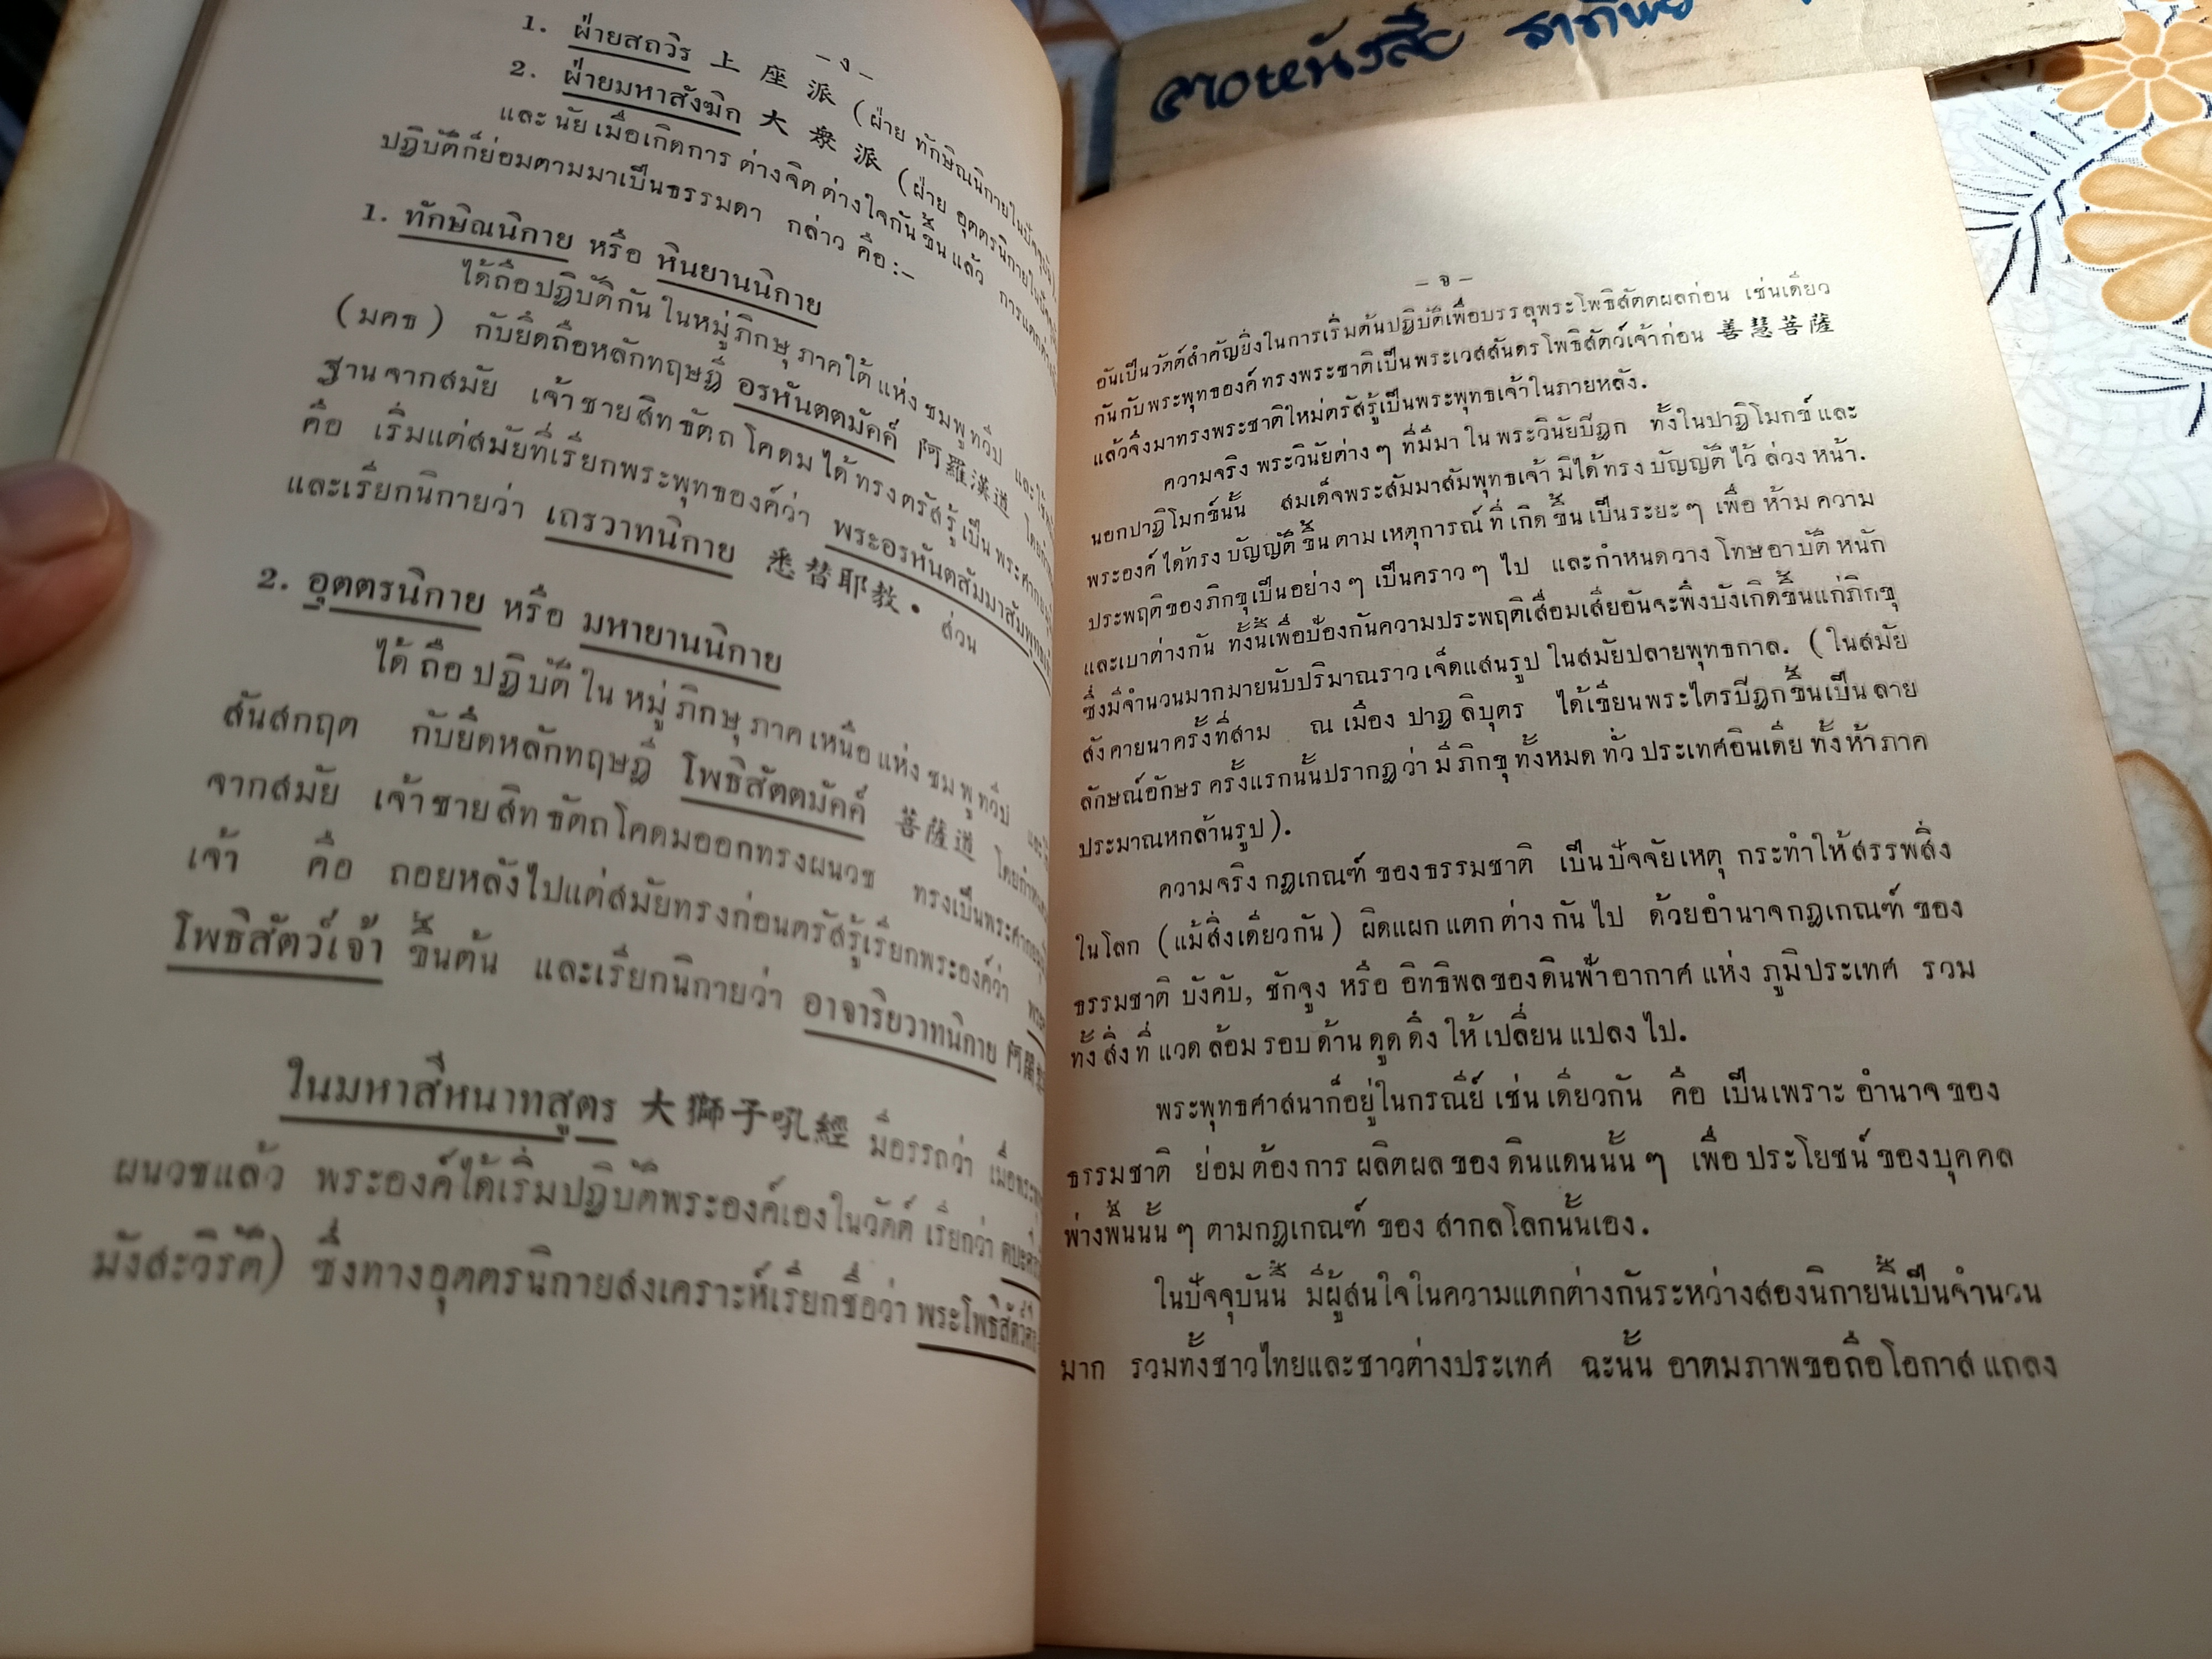 – ง –
1. ฝ่ายสถวีร 上座派 (ฝ่าย ทักษิณนิกายในปัจจุบัน).
2. ฝ่ายมหาสังฆิก 大衆派 (ฝ่าย อุตตรนิกายในปัจจุบัน)
และ นัย เมื่อเกิดการ ต่างจิต ต่างใจกันขึ้น แล้ว
ปฏิบัติก็ย่อมตามมาเป็นธรรมดา กล่าว คือ :–
1. ทักษิณนิกาย หรือ หินยานนิกาย
ได้ถือปฏิบัติกัน ในหมู่ ภิกษุ ภาคใต้ แห่ง ชมพูทวีป
(มคธ) กับยึดถือหลักทฤษฎี อรหันตตมัคค์ 阿羅漢道
ฐานจากสมัย เจ้าชายสิทธัตถโคดม ได้ทรงตรัสรู้ เป็น
คือ เริ่มแต่สมัยที่เรียกพระพุทธองค์ว่า พระอรหันตสัมมาสัมพุทธ
และเรียกนิกายว่า เถรวาทนิกาย 悉替耶教. ส่วน
2. อุตตรนิกาย หรือ มหายานนิกาย
ได้ ถือ ปฏิบัติ ใน หมู่ ภิกษุ ภาค เหนือ แห่ง ชมพูทวีป
สันสกฤต กับยึดหลักทฤษฎี โพธิสัตตมัคค์ 菩薩道
จากสมัย เจ้าชายสิทธัตถโคดมออกทรงผนวช
เจ้า คือ ถอยหลังไปแต่สมัยทรงก่อนตรัสรู้เรียกพระองค์ว่า
โพธิสัตว์เจ้า ขึ้นต้น และเรียกนิกายว่า อาจาริยวาทนิกาย
ในมหาสีหนาทสูตร 大獅子吼經 มีอรรถว่า
ผนวชแล้ว พระองค์ได้เริ่มปฏิบัติพระองค์เองในวัตต์ เรียกว่า
มังสะวิรัติ) ซึ่งทางอุตตรนิกายสงเคราะห์เรียกชื่อว่า
– จ –
อันเป็นวัตต์สำคัญยิ่งในการเริ่มต้นปฏิบัติเพื่อบรรลุพระโพธิสัตตผลก่อน เช่นเดียว
กันกับพระพุทธองค์ทรงพระชาติเป็นพระเวสสันดรโพธิสัตว์เจ้าก่อน 善慧菩薩
แล้วจึงมาทรงพระชาติใหม่ตรัสรู้เป็นพระพุทธเจ้าในภายหลัง.
ความจริง พระวินัยต่าง ๆ ที่มีมา ใน พระวินัยปิฎก ทั้งในปาฏิโมกข์ และ
นอกปาฏิโมกข์นั้น สมเด็จพระสัมมาสัมพุทธเจ้า มิได้ทรง บัญญัติ ไว้ ล่วง หน้า.
พระองค์ ได้ทรง บัญญัติ ขึ้น ตาม เหตุการณ์ ที่ เกิด ขึ้น เป็นระยะ ๆ เพื่อ ห้าม ความ
ประพฤติของภิกขุเป็นอย่าง ๆ เป็นคราว ๆ ไป และกำหนดวาง โทษอาบัติ หนัก
และเบาต่างกัน ทั้งนี้เพื่อป้องกันความประพฤติเสื่อมเสียอันจะพึงบังเกิดขึ้นแก่ภิกขุ
ซึ่งมีจำนวนมากมายนับปริมาณราว เจ็ดแสนรูป ในสมัยปลายพุทธกาล. (ในสมัย
สังคายนาครั้งที่สาม ณ เมือง ปาฏลิบุตร ได้เขียนพระไตรปิฎกขึ้นเป็น ลาย
ลักษณ์อักษร ครั้งแรกนั้นปรากฏว่า มี ภิกขุ ทั้งหมด ทั่ว ประเทศอินเดีย ทั้งห้าภาค
ประมาณหกล้านรูป).
ความจริง กฎเกณฑ์ ของธรรมชาติ เป็นปัจจัยเหตุ กระทำให้สรรพสิ่ง
ในโลก (แม้สิ่งเดียวกัน) ผิดแผก แตก ต่าง กัน ไป ด้วยอำนาจกฎเกณฑ์ ของ
ธรรมชาติ บังคับ, ชักจูง หรือ อิทธิพลของดินฟ้าอากาศ แห่ง ภูมิประเทศ รวม
ทั้ง สิ่ง ที่ แวด ล้อม รอบ ด้าน ดูด ดึง ให้ เปลี่ยน แปลง ไป.
พระพุทธศาสนาก็อยู่ในกรณีย์ เช่น เดียวกัน คือ เป็นเพราะ อำนาจ ของ
ธรรมชาติ ย่อม ต้อง การ ผลิตผล ของ ดินแดนนั้น ๆ เพื่อ ประโยชน์ ของบุคคล
พ่างพื้นนั้น ๆ ตามกฎเกณฑ์ ของ สากลโลกนั้นเอง.
ในปัจจุบันนี้ มีผู้สนใจในความแตกต่างกันระหว่างสองนิกายนี้เป็นจำนวน
มาก รวมทั้งชาวไทยและชาวต่างประเทศ ฉะนั้น อาตมภาพขอถือโอกาส แถลง